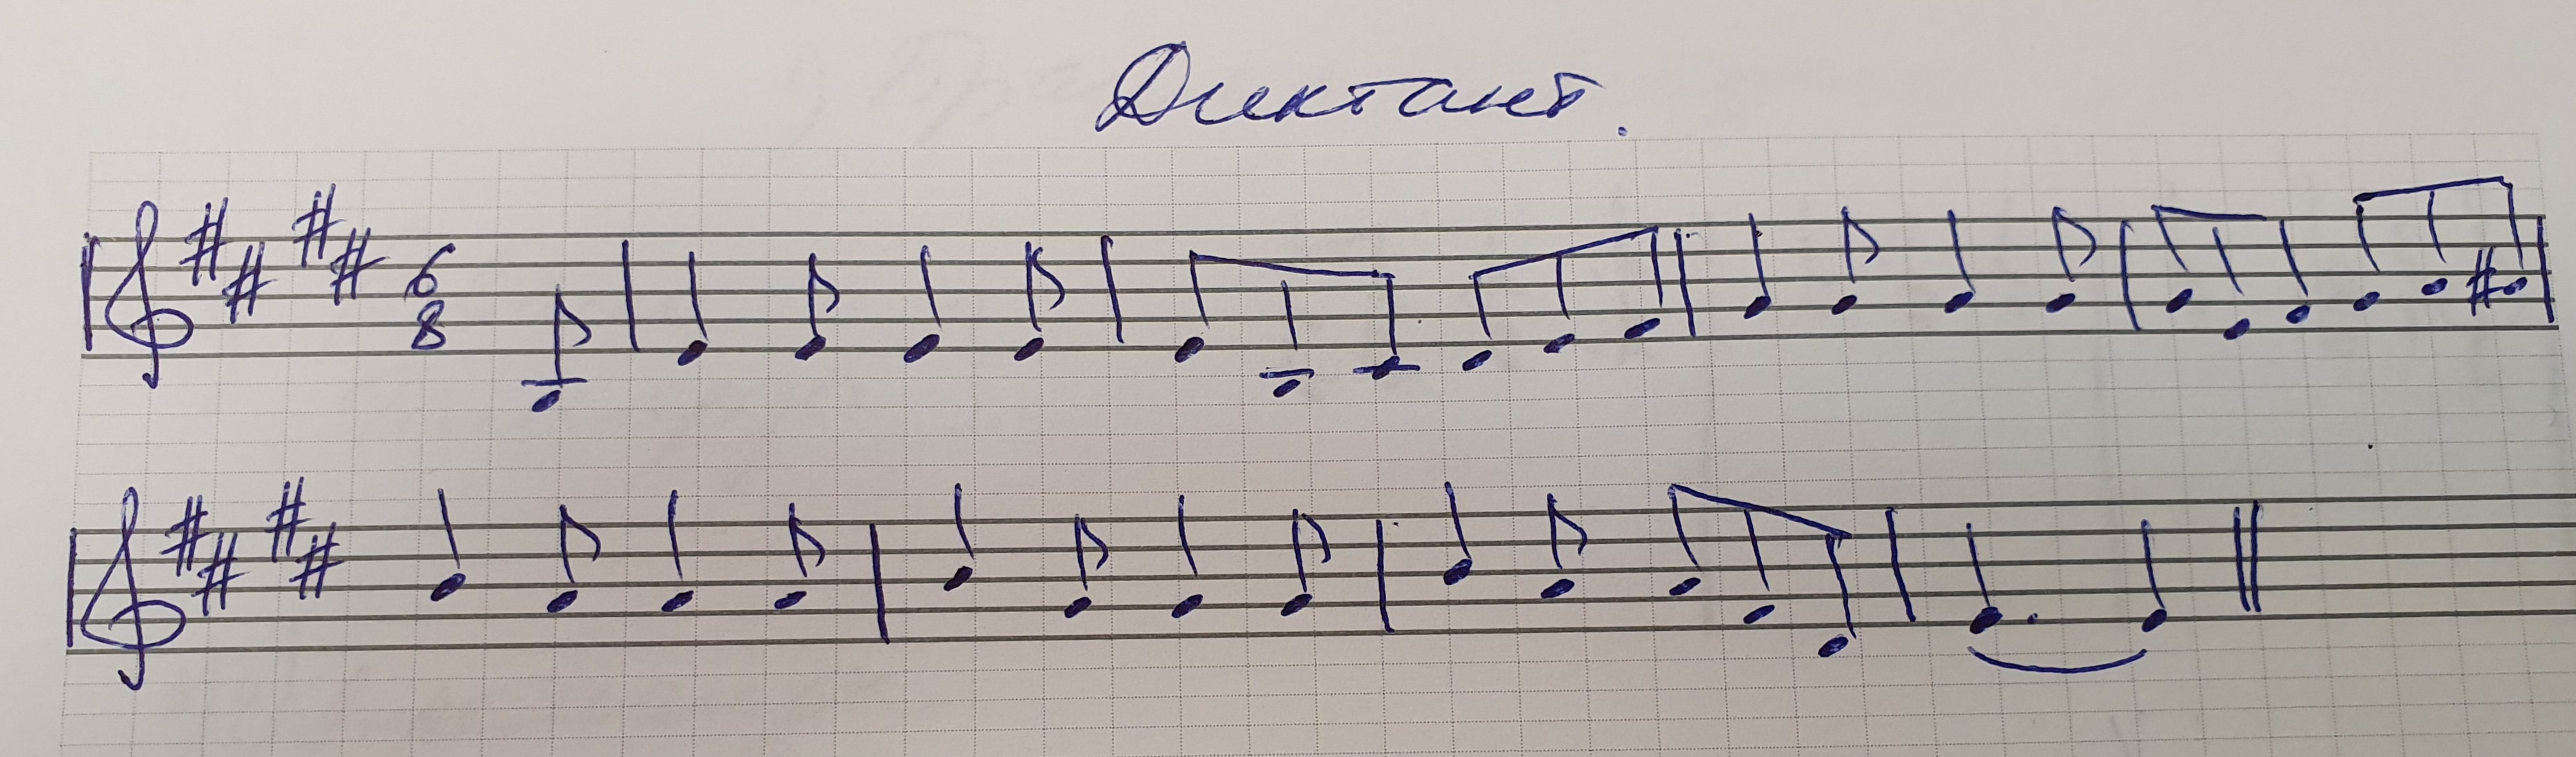 Диктант.
6
8